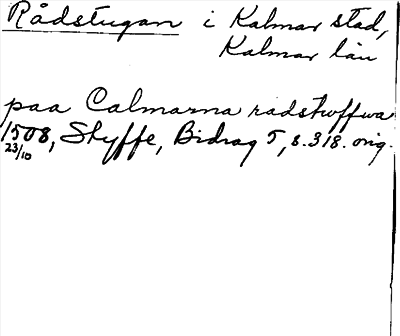 Rådstugan i Kalmar stad,
Kalmar län
paa Calmarna radstwffwa
1508, Styffe, Bidrag 5, s. 318. orig.
23/10